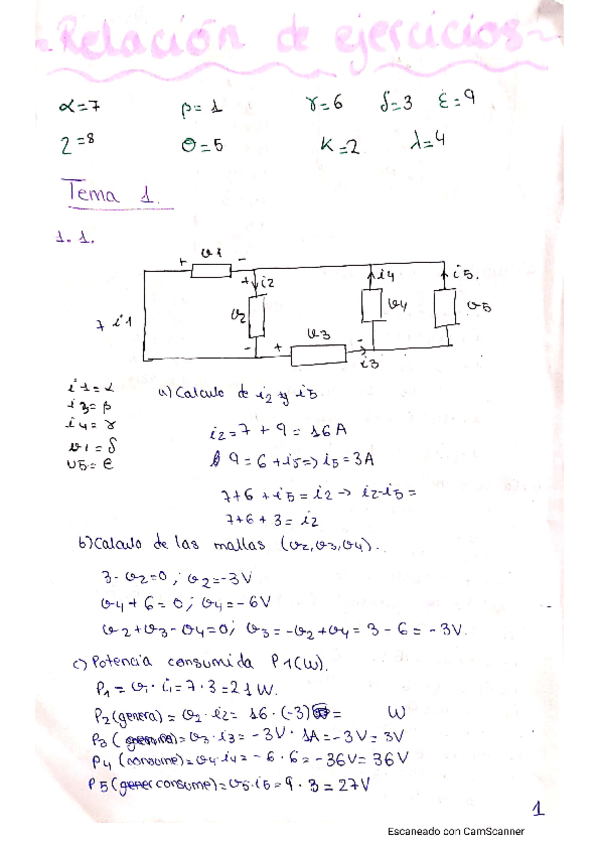 -Relación de ejercicios-
α=7 β=1 γ=6 δ=3 ε=9
η=8 θ=5 K=2 λ=4
Tema 1.
1.1.
+ v1 -
+ i2 i4 i5.
7 i1 v2 v4 v5
- + v3 - i3
i1=α a) Calculo de i2 y i5
i3=β
i4=γ i2=7+9=16A
v1=δ
v5=ε 9=6+i5=> i5=3A
7+6+i5=i2 -> i2-i5=
7+6+3=i2
b) Calculo de las mallas (v2,v3,v4).
3-v2=0; v2=-3V
v4+6=0; v4=-6V
v2+v3-v4=0; v3=-v2+v4=3-6=-3V.
c) Potencia consumida P1(W).
P1=v1·i1=7·3=21W.
P2(genera)=v2·i2=16·(-3)= W
P3()=v3·i3=-3V·1A=-3V=3V
P4(consume)=v4·i4=-6·6=-36V=36V
P5(gener consume)=v5·i5=9·3=27V
1
Escaneado con CamScanner